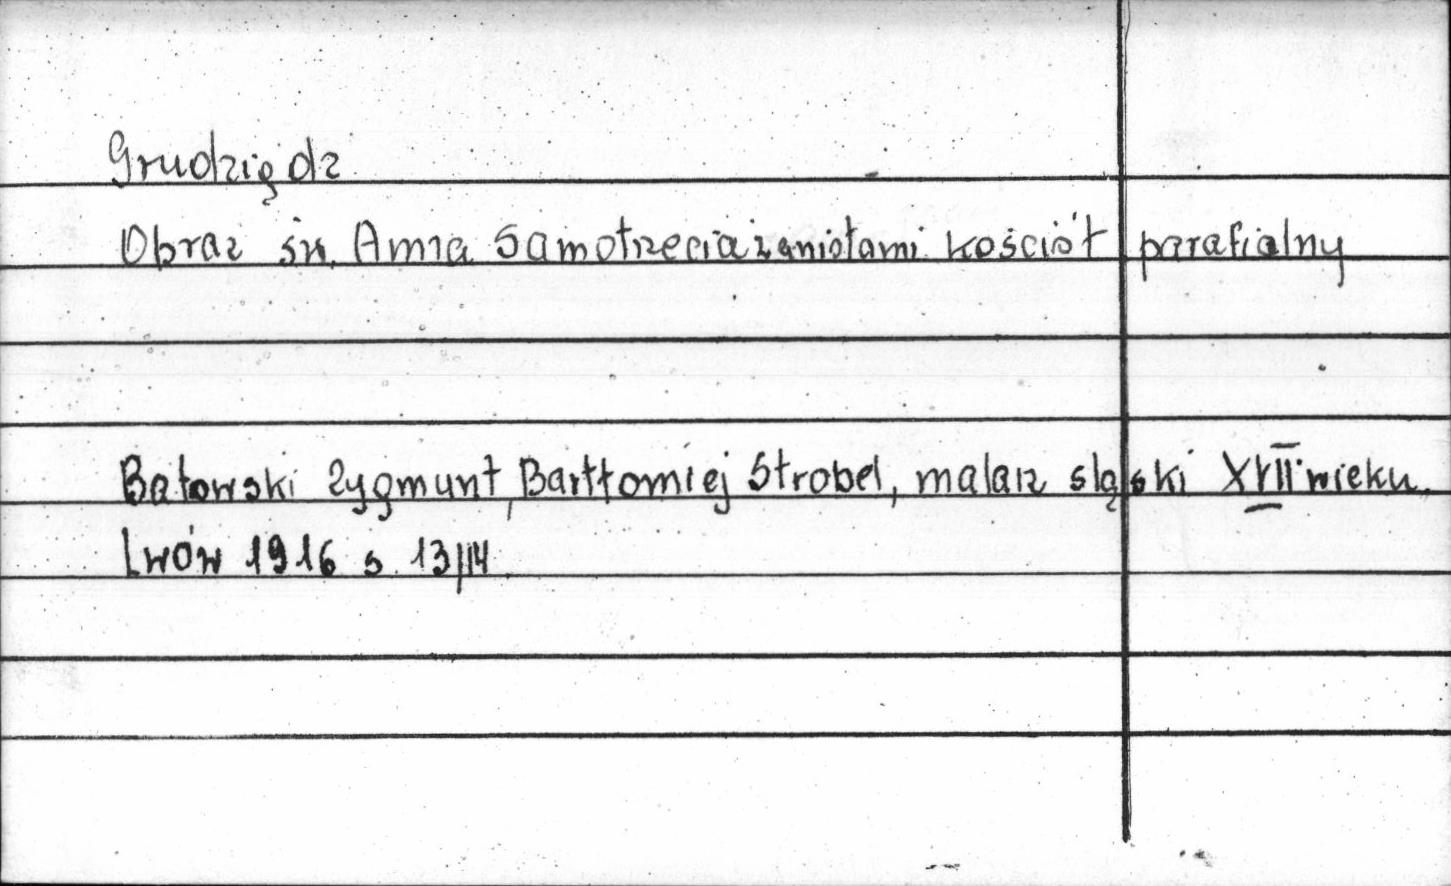 Grudziądz
Obraz św. Anna Samotrzecia z aniołami. kościół parafialny
Batowski Zygmunt, Bartłomiej Strobel, malarz śląski XVII wieku.
Lwów 1916 s. 13/14